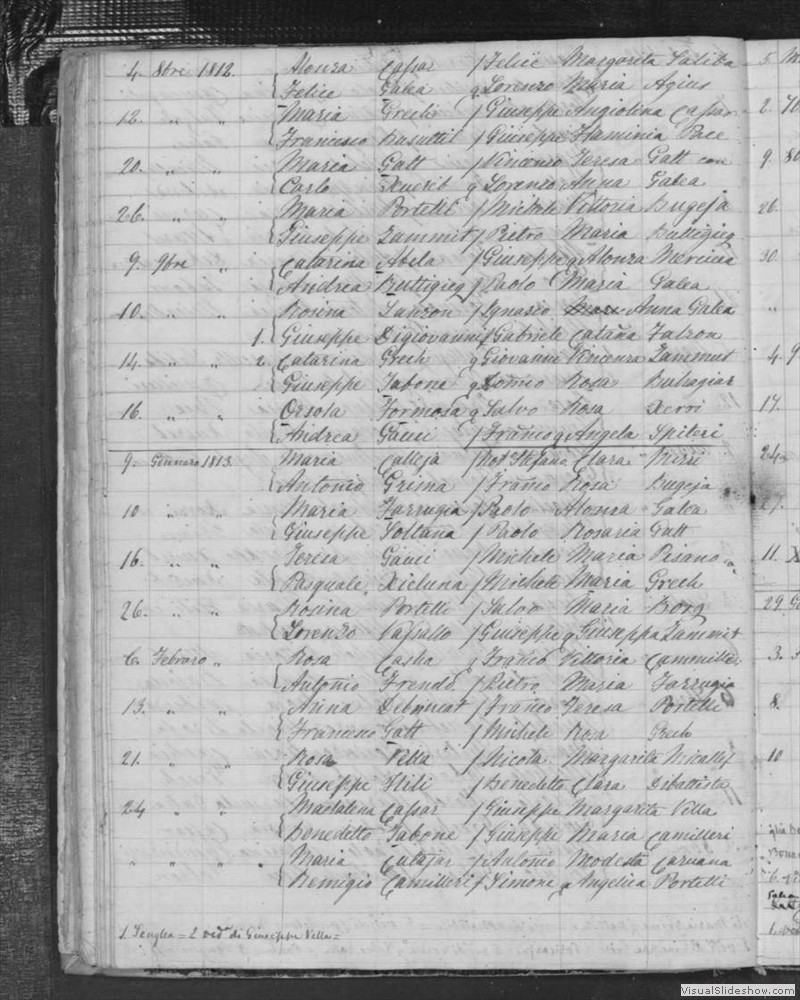 4. 8bre 1812. Alonza Cassar f Felice Margarita Saliba
Felice Galea q Lorenzo Maria Agius
12. " " Maria Grech f Giuseppe Angiolina Cassar
Francesco Busuttil f Giuseppe Flaminia Pace
20. " " Maria Gatt f Vincenzo Teresa Gatt con
Carlo Xuereb q Lorenzo Anna Galea
26. " " Maria Portelli f Michele Vittoria Bugeja
Giuseppe Zammit f Pietro Maria Buttigieg
9. 9bre " Catarina Abela f Giuseppe q Alonza Mercieca
Andrea Buttigieg q Paolo Maria Galea
10. " " Rosina f Ignazio Anna Galea
1. Giuseppe Digiovanni f Gabriele Catana Falzon
14. " " 2. Catarina Grech q Giovanni Vincenza Zammut
Giuseppe Tabone q Rosa Buhagiar
16 " " Orsola Formosa q Salvo Rosa Xerri
Andrea Gauci f Franco q Angela Spiteri
9. Gennaro 1813. Maria Calleja f Not Stefano Clara Mizzi
Antonio Grima f Franco Rosa Bugeja
10 " " Maria Farrugia f Paolo Alonza Galea
Giuseppe Soltana f Paolo Rosaria Gatt
16. " " Teresa Gauci f Michele Maria Pisano
Pasquale Xicluna f Michele Maria Grech
26. " " Rosina Portelli f Salvo Maria Borg
Lorenzo Vassallo f Giuseppe q Giuseppa Zammit
6. Febraro " Rosa Casha q Franco Vittoria Cammilleri
Antonio Frendo f Pietro Maria Farrugia
13. " " Anna Deboucat f Franco Teresa Portelli
Francesco Gatt f Michele Rosa Grech
21. " " Rosa Vella f Nicola Margarita Micallef
Giuseppe Stili f Benedetto Clara Dibattista
24 " " Madalena Cassar f Giuseppe Margarita Vella
Benedetto Tabone f Giuseppe Maria Camilleri
" " " Maria Cutajar f Antonio Modesta Caruana
Remigio Camilleri f Simone q Angelica Portelli
1. Senglea = 2 ved. di Giuseppe Vella =
5
2.
9.
26.
30.
"
4.
17.
24.
11.
29.
3.
8.
10
VisualSlideshow.com